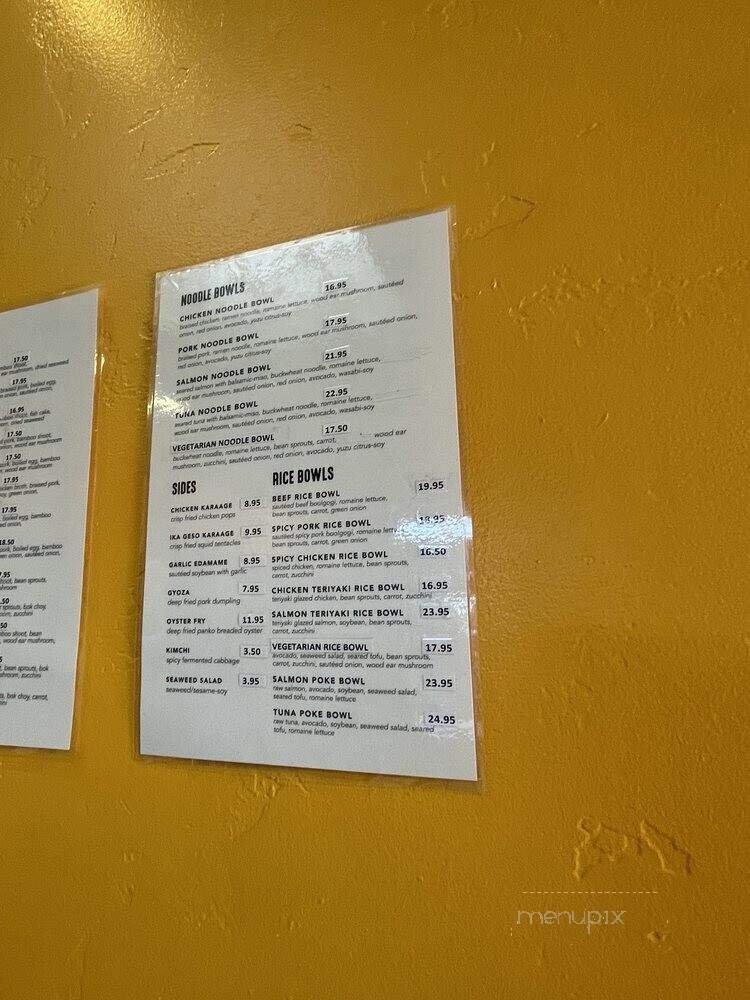 17.50
17.95
16.95
17.50
17.50
17.95
17.95
18.50
NOODLE BOWLS
CHICKEN NOODLE BOWL 16.95
braised chicken, ramen noodle, romaine lettuce, wood ear mushroom, sautéed
onion, red onion, avocado, yuzu citrus-soy
PORK NOODLE BOWL 17.95
braised pork, ramen noodle, romaine lettuce, wood ear mushroom, sautéed onion,
red onion, avocado, yuzu citrus-soy
SALMON NOODLE BOWL 21.95
seared salmon with balsamic-miso, buckwheat noodle, romaine lettuce,
wood ear mushroom, sautéed onion, red onion, avocado, wasabi-soy
TUNA NOODLE BOWL 22.95
seared tuna with balsamic-miso, buckwheat noodle, romaine lettuce,
wood ear mushroom, sautéed onion, red onion, avocado, wasabi-soy
VEGETARIAN NOODLE BOWL 17.50
buckwheat noodle, romaine lettuce, bean sprouts, carrot, wood ear
mushroom, zucchini, sautéed onion, red onion, avocado, yuzu citrus-soy
SIDES
CHICKEN KARAAGE 8.95
crisp fried chicken pops
IKA GESO KARAAGE 9.95
crisp fried squid tentacles
GARLIC EDAMAME 8.95
sautéed soybean with garlic
GYOZA 7.95
deep fried pork dumpling
OYSTER FRY 11.95
deep fried panko breaded oyster
KIMCHI 3.50
spicy fermented cabbage
SEAWEED SALAD 3.95
seaweed/sesame-soy
RICE BOWLS
BEEF RICE BOWL 19.95
sautéed beef boolgogi, romaine lettuce,
bean sprouts, carrot, green onion
SPICY PORK RICE BOWL 18.95
sautéed spicy pork boolgogi, romaine lettuce,
bean sprouts, carrot, green onion
SPICY CHICKEN RICE BOWL 16.50
spiced chicken, romaine lettuce, bean sprouts,
carrot, zucchini
CHICKEN TERIYAKI RICE BOWL 16.95
teriyaki glazed chicken, bean sprouts, carrot, zucchini
SALMON TERIYAKI RICE BOWL 23.95
teriyaki glazed salmon, soybean, bean sprouts,
carrot, zucchini
VEGETARIAN RICE BOWL 17.95
avocado, seaweed salad, seared tofu, bean sprouts,
carrot, zucchini, sautéed onion, wood ear mushroom
SALMON POKE BOWL 23.95
raw salmon, avocado, soybean, seaweed salad,
seared tofu, romaine lettuce
TUNA POKE BOWL 24.95
raw tuna, avocado, soybean, seaweed salad, seared
tofu, romaine lettuce
menupix